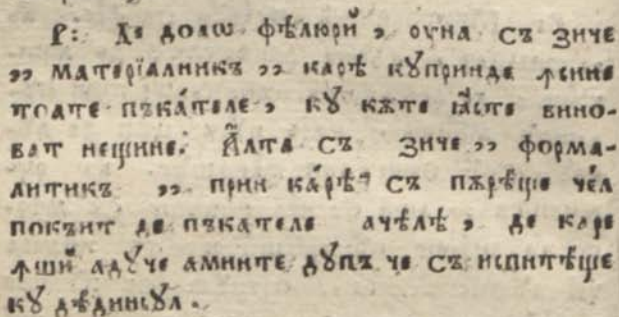 Р: Де доаѡ фѣлюрй , оуна съ зиче
„ матерїалникъ „ карѣ кꙋпринде ꙟсине
тоате пъка́теле , кꙋ кѫте ꙗ҆сте вино-
ват нещине. А҆лта съ зиче „ форма-
литикъ „ прин ка́рѣ съ пѫрѣще че́л
покъит де пъкателе ачѣлѣ , де каре
ꙟший адꙋче аминте дꙋпъ че съ испитѣще
кꙋ дѣдинсꙋл .